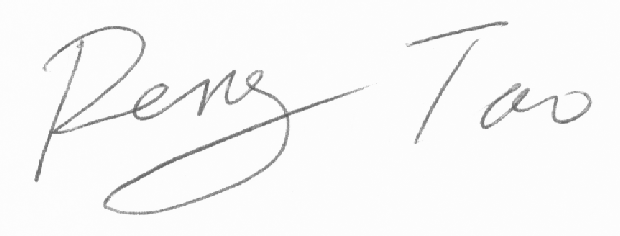 Peng Tao